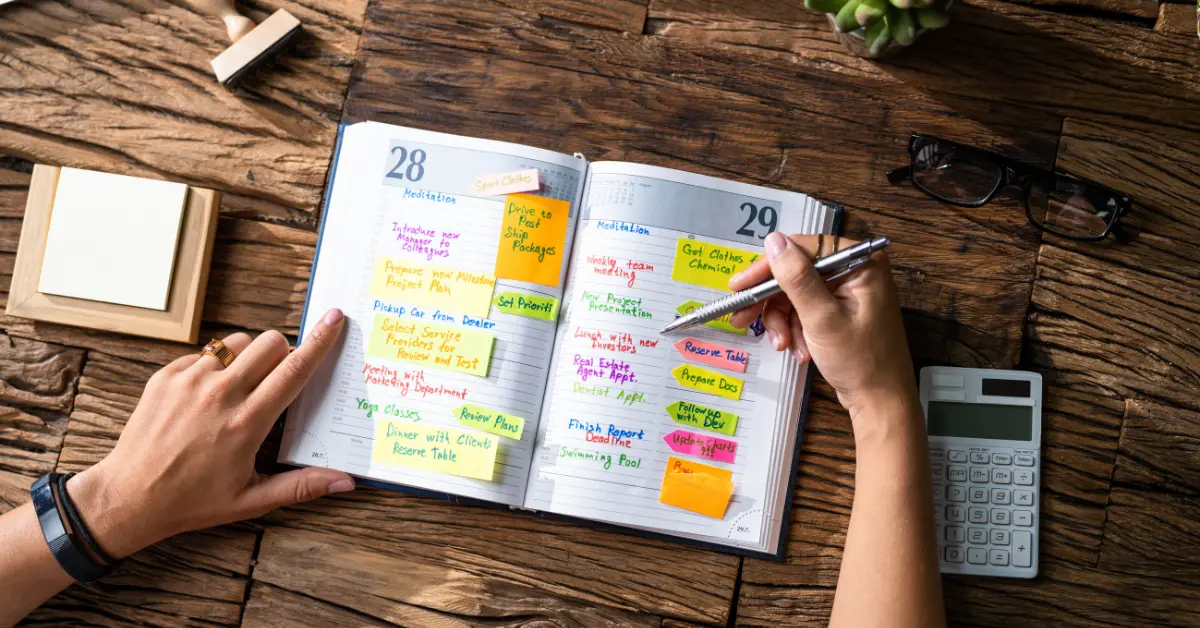 28
Sport Clothes
Meditation
Drive to
Post
Ship
Packages
Introduce new
Manager to
colleagues
Prepare new Milestone
Project Plan
Set Prioriti
Pickup Car from Dealer
Select Service
Providers for
Review and Test
Meeting with
Marketing Department
Yoga Classes
Review Plans
Dinner with Clients
Reserve Table
29
Meditation
Get Clothes to
Chemical
Weekly team
meeting
New Project
Presentation
Lunch with new
Investors
Reserve Table
Real Estate
Agent Appt.
Prepare Docs
Dentist Appt.
Followup
with Dev
Finish Report
Deadline
Update Charts
Swimming Pool